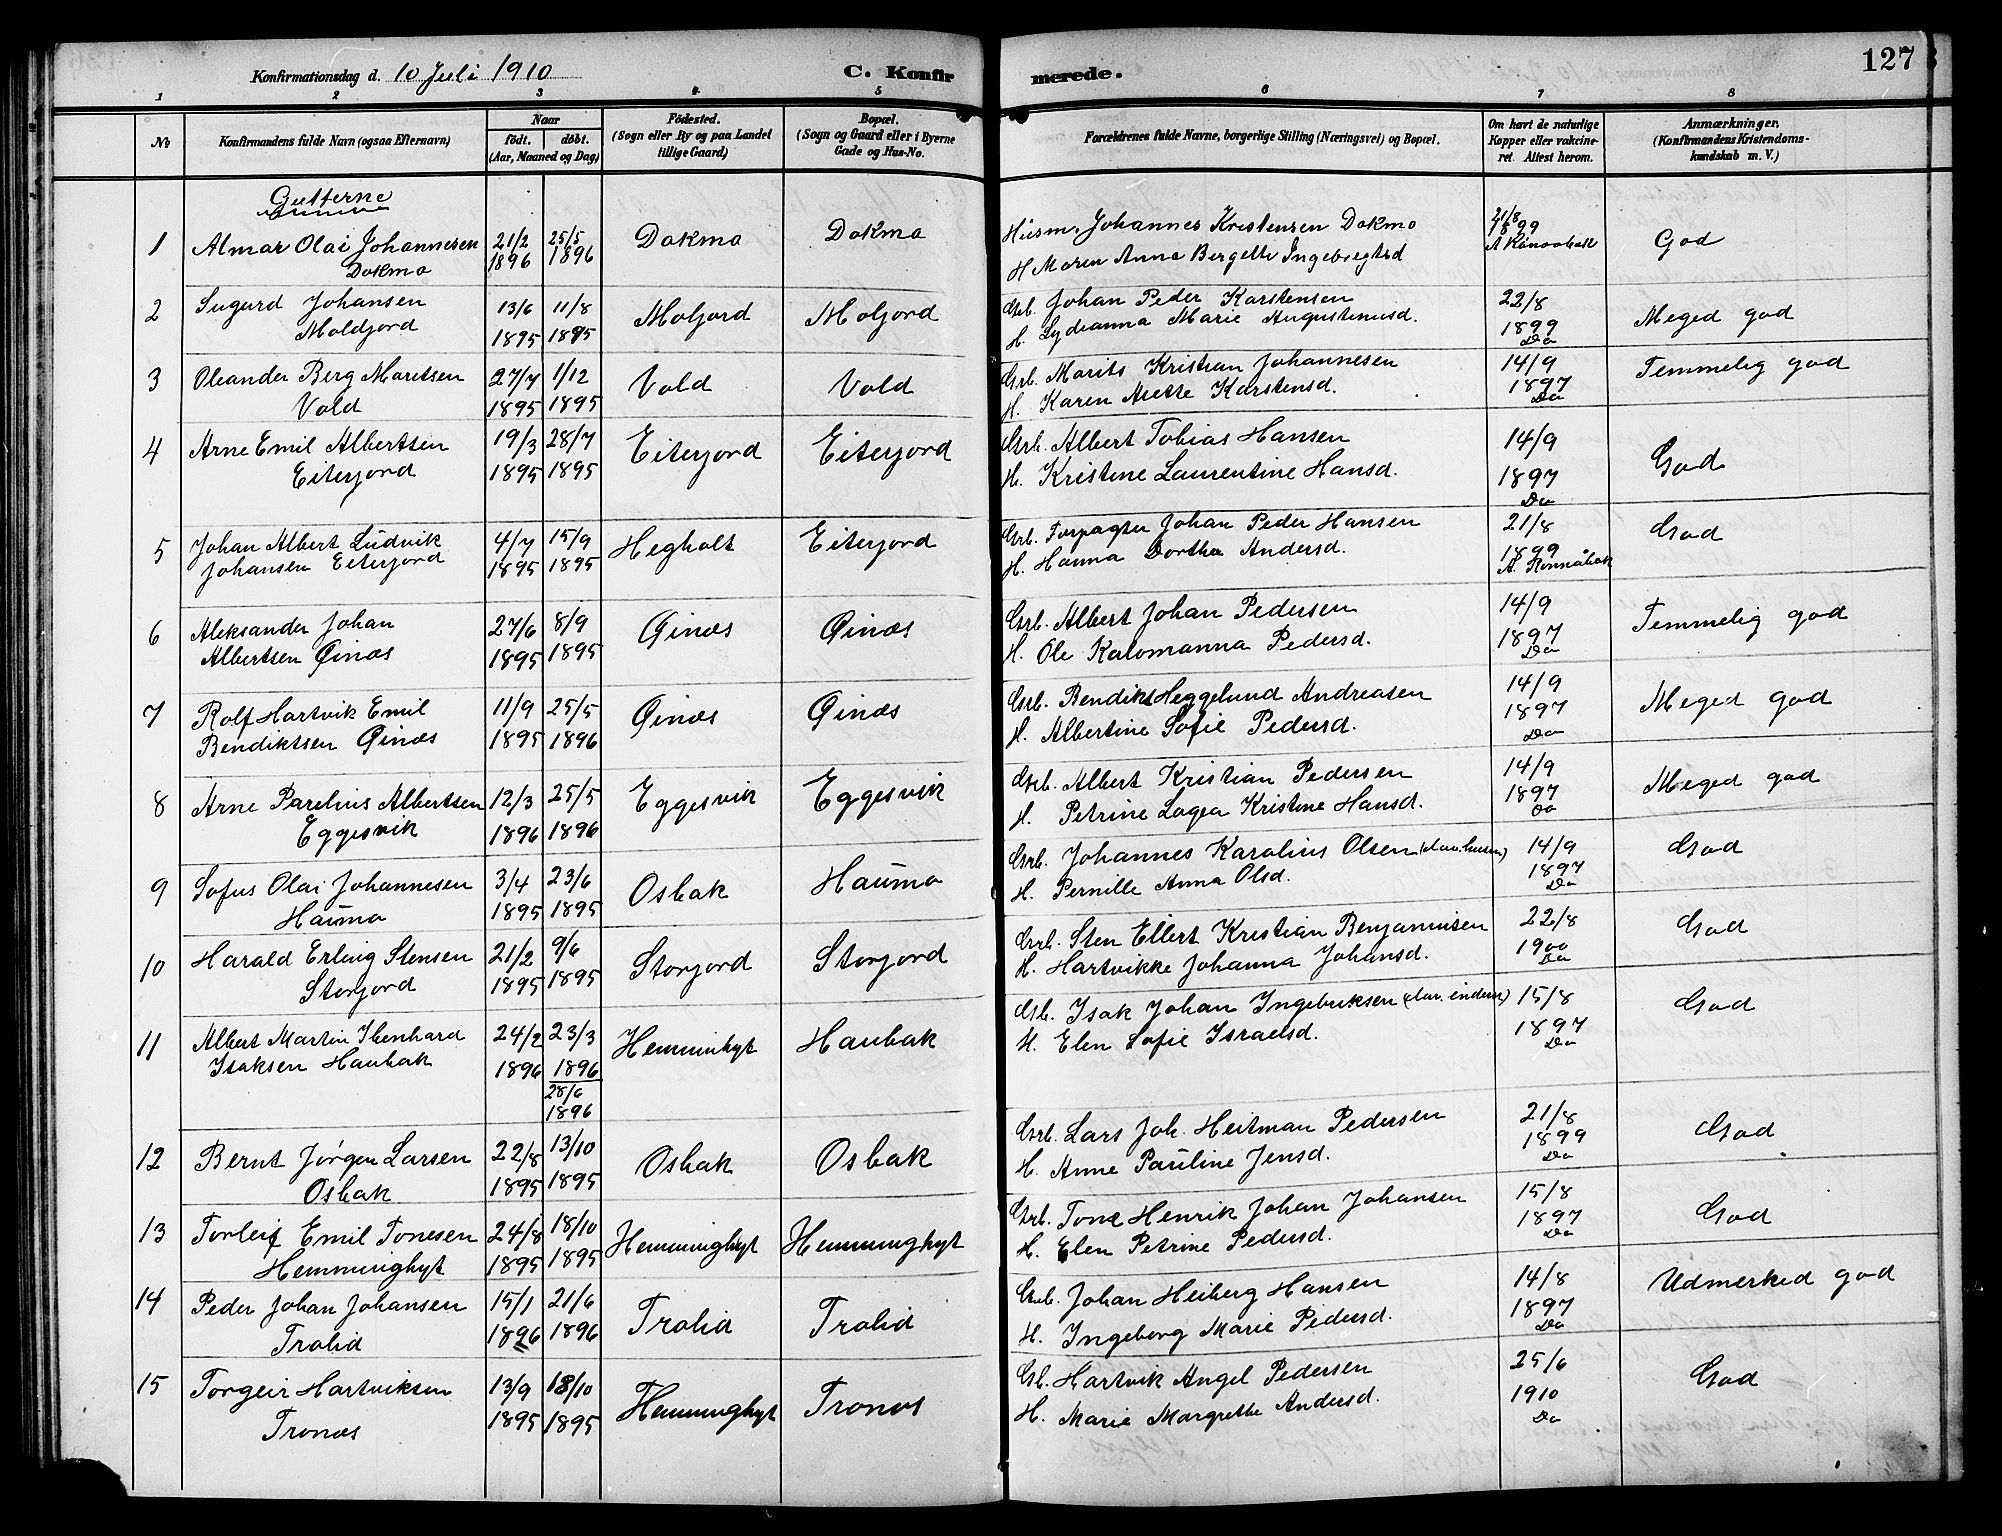 127
Konfirmationsdag d. 10 Juli 1910 C. Konfirmerede.
1 2 3 4 5 6 7 8
No Konfirmandens fulde Navn (ogsaa Efternavn) Naar født. døbt. (Aar, Maaned og Dag) Fødested. (Sogn eller By og paa Landet tillige Gaard) Bopæl. (Sogn og Gaard eller i Byerne Gade og Hus-No. Forældrenes fulde Navne, borgerlige Stilling (Næringsvei) og Bopæl. Om havt de naturlige Kopper eller vakcineret. Attest herom. Anmærkninger. (Konfirmandens Kristendomskundskab m. V.)
Gutterne
1 Almar Olai Johannesen 21/2 25/5 Dokmo Dokmo Husm. Johannes Kristensen Dokmo 21/8 1899 God
Dokmo 1896 1896 H Maren Anna Bergette Ingebregtsd
2 Sugurd Johansen 13/6 11/8 Moljord Moljord Grb. Johan Peder Karstensen 22/8 Meged god
Moldjord 1895 1895 H. Lydianna Marie Augustinusd. 1899 Do
3 Oleander Berg Maritsen 27/7 1/12 Vold Vold Grb. Marits Kristian Johannesen 14/9 Temmelig god
Vold 1895 1895 H. Karen Anette Karstensd. 1897 Do
4 Arne Emil Albertsen 19/3 28/7 Eiterjord Eiterjord Grb. Albert Tobias Hansen 14/9 God
Eiterjord 1895 1895 H. Kristine Laurentine Hansd. 1897 Do
5 Johan Albert Ludvik 4/7 15/9 Hegholt Eiterjord Grb. Forpagter Johan Peder Hansen 21/8 God
Johansen Eiterjord 1895 1895 H. Hanna Dorthea Andersd. 1899 A. Kunnåbak
6 Aleksander Johan 27/6 8/9 Øinæs Øinæs Grb. Albert Johan Pedersen 14/9 Temmelig god
Albertsen Øinæs 1895 1895 H. Ole Kalomanna Pedersd. 1897 Do
7 Rolf Hartvik Emil 11/9 25/5 Øinæs Øinæs Grb. Bendiks Heggelund Andreasen 14/9 Meged god
Bendiktsen Øinæs 1895 1896 H. Albertine Sofie Pedersd. 1897 Do
8 Arne Parelius Albertsen 12/3 25/5 Eggesvik Eggesvik Grb. Albert Kristian Pedersen 14/9 Meged god
Eggesvik 1896 1896 H. Petrine Lagea Kristine Hansd. 1897 Do
9 Sofus Olai Johannesen 3/4 23/6 Osbak Haumo Grb. Johannes Karolius Olsen 14/9 God
Haumo 1895 1895 H. Pernille Anna Olsd. 1897 Do
10 Harald Erling Stensen 21/2 9/6 Storjord Storjord Grb. Sten Ellert Kristian Benjaminsen 22/8 God
Storjord 1895 1895 H. Hartvikke Johanna Johansd. 1900 Do
11 Albert Martin Ibenhard 24/2 23/3 Hemminhyt Haubak Grb. Isak Johan Ingebriksen 15/8 God
Isaksen Haubak 1896 1896 H. Elen Sofie Israelsd. 1897 Do
28/6
1896
12 Bernt Jørgen Larsen 22/8 13/10 Osbak Osbak Grb. Lars Joh. Heitman Pedersen 21/8 God
Osbak 1895 1895 H. Anne Pauline Jensd. 1899 Do
13 Torleif Emil Tonesen 24/8 18/10 Hemminghyt Hemminghyt Grb. Tone Henrik Johan Johansen 15/8 God
Hemminghyt 1895 1895 H. Elen Petrine Pedersd. 1897 Do
14 Peder Johan Johansen 15/1 21/6 Trolid Trolid Grb. Johan Heiberg Hansen 14/8 Udmerked god
Trolid 1896 1896 H. Ingeborg Marie Pedersd. 1897 Do
15 Torgeir Hartviksen 13/9 18/10 Hemminghyt Tronæs Grb. Hartvik Angel Pedersen 25/6 God
Tronæs 1895 1895 H. Marie Margrethe Andersd. 1910 Do